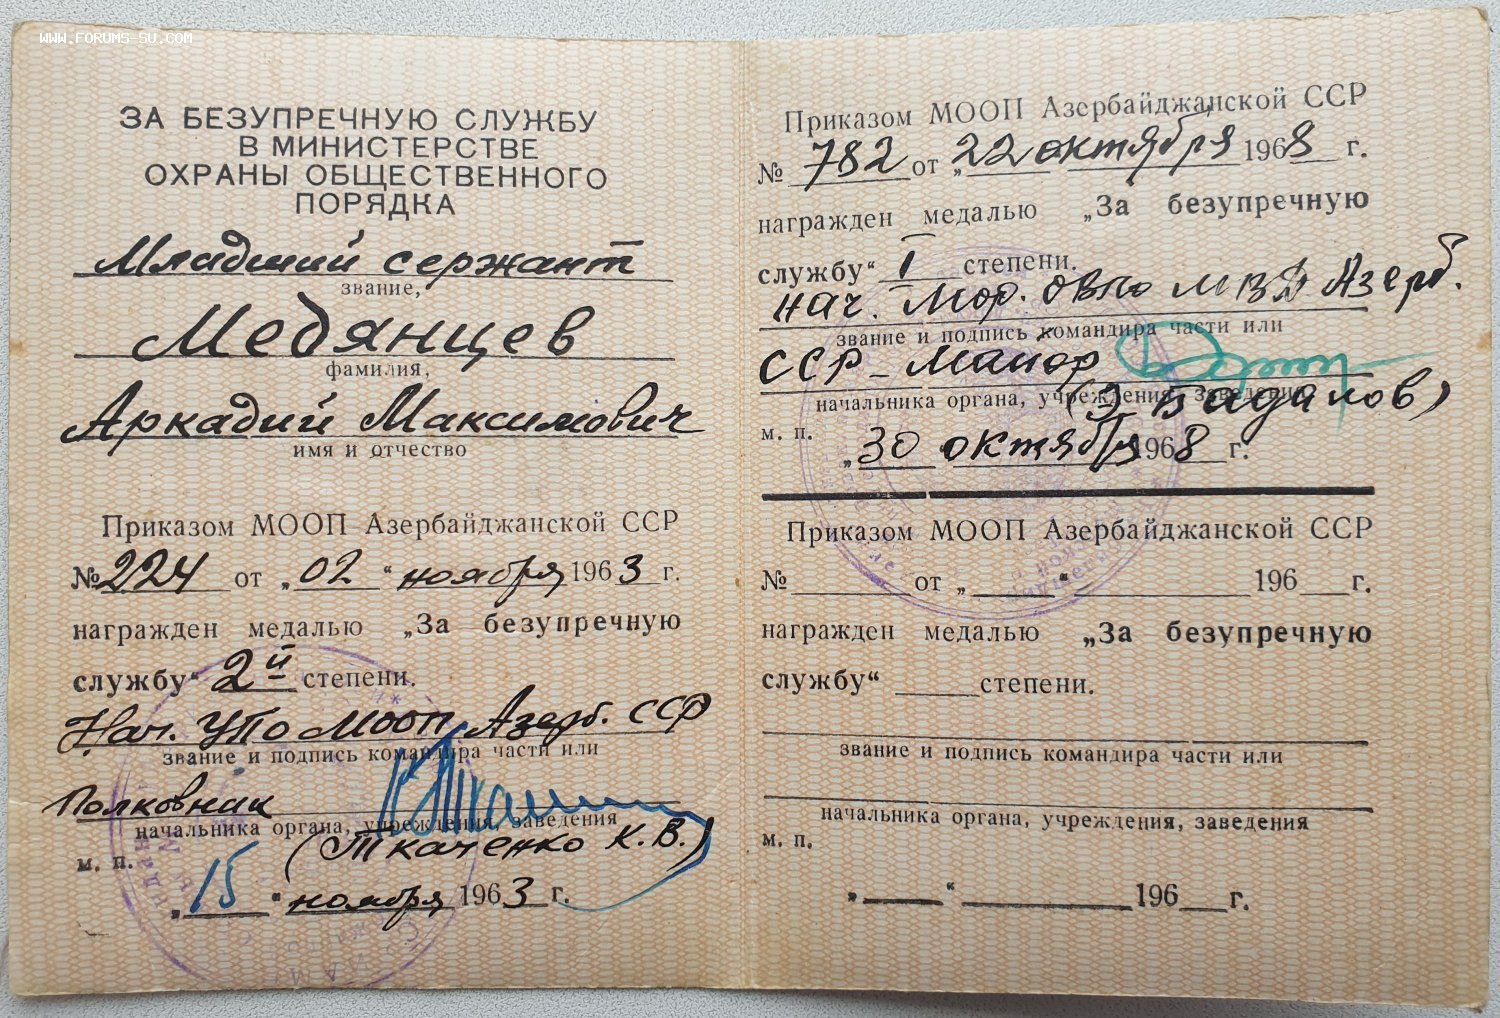 WWW.FORUMS-SU.COM
ЗА БЕЗУПРЕЧНУЮ СЛУЖБУ
В МИНИСТЕРСТВЕ
ОХРАНЫ ОБЩЕСТВЕННОГО
ПОРЯДКА
Младший сержант
звание,
Медянцев
фамилия,
Аркадий Максимович
имя и отчество
Приказом МООП Азербайджанской ССР
№ 224 от „02“ ноября 1963 г.
награжден медалью „За безупречную
службу“ 2й степени.
Нач. УПО МООП Азерб. ССР
звание и подпись командира части или
Полковник
начальника органа, учреждения, заведения
(Ткаченко К.В.)
м. п.
„15“ ноября 1963 г.
Приказом МООП Азербайджанской ССР
№ 782 от „22 октября 1968 г.
награжден медалью „За безупречную
службу“ I степени.
нач. Мор. ОВПО МВД Азерб.
звание и подпись командира части или
ССР – майор
начальника органа, учреждения, заведения
(Э. Бадалов)
м. п.
„30 октября 1968 г.
Приказом МООП Азербайджанской ССР
№ от „ “ 196 г.
награжден медалью „За безупречную
службу“ степени.
звание и подпись командира части или
начальника органа, учреждения, заведения
м. п.
„ “ 196 г.